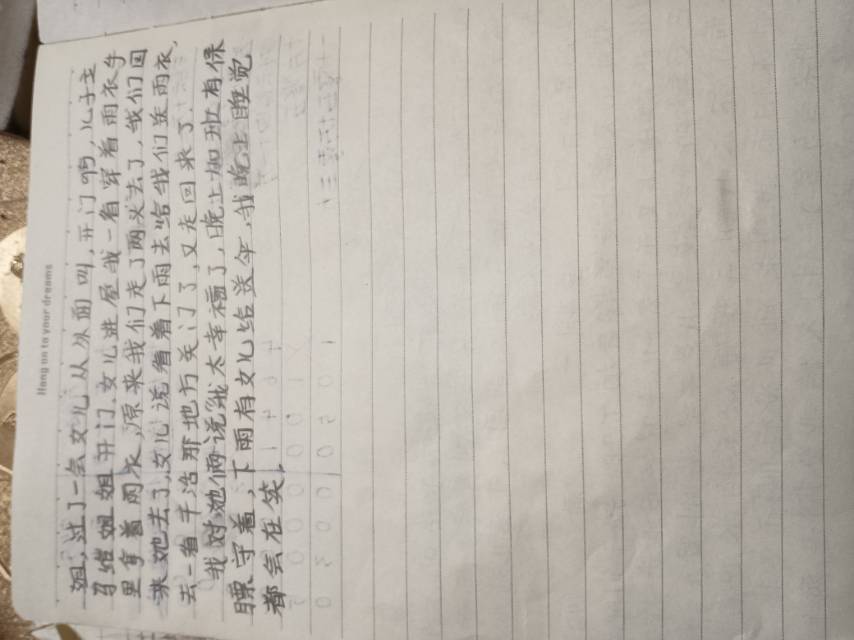 Hang on to your dreams
姐,过了一会女儿从外面叫,开门啊,儿子
马给姐姐开门,女儿进屋我一看穿着雨衣手
里拿着雨衣,原来我们走了两义去了,我们回
来她去了,女儿说看着下雨去给我们送雨衣,
去一看干活那地方关门了,又走回来了.
我对她俩说我太幸福了,晚上加班有保
镖守着,下雨有女儿给送伞,我晚上睡觉
都会在笑,